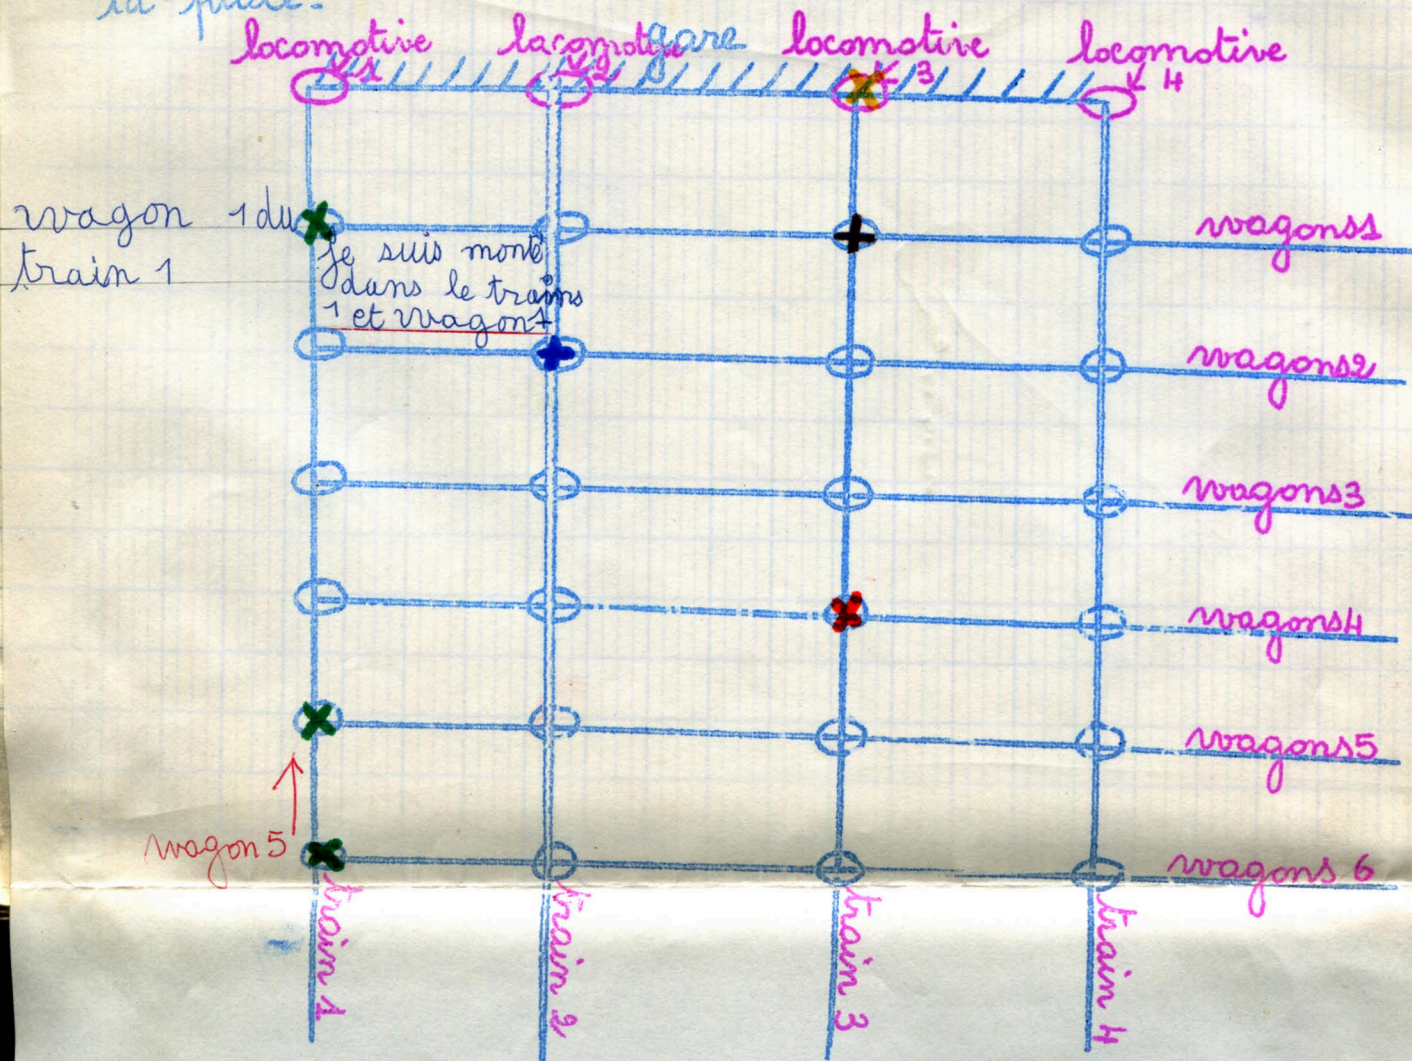 la
gare
locomotive
1
locomotive
2
locomotive
3
locomotive
4
wagon 1 du
train 1
je suis monté
dans le trains
1 et wagon 1
wagons1
wagons2
wagons3
wagons4
wagons5
wagons 6
wagon 5
train 1
train 2
train 3
train 4